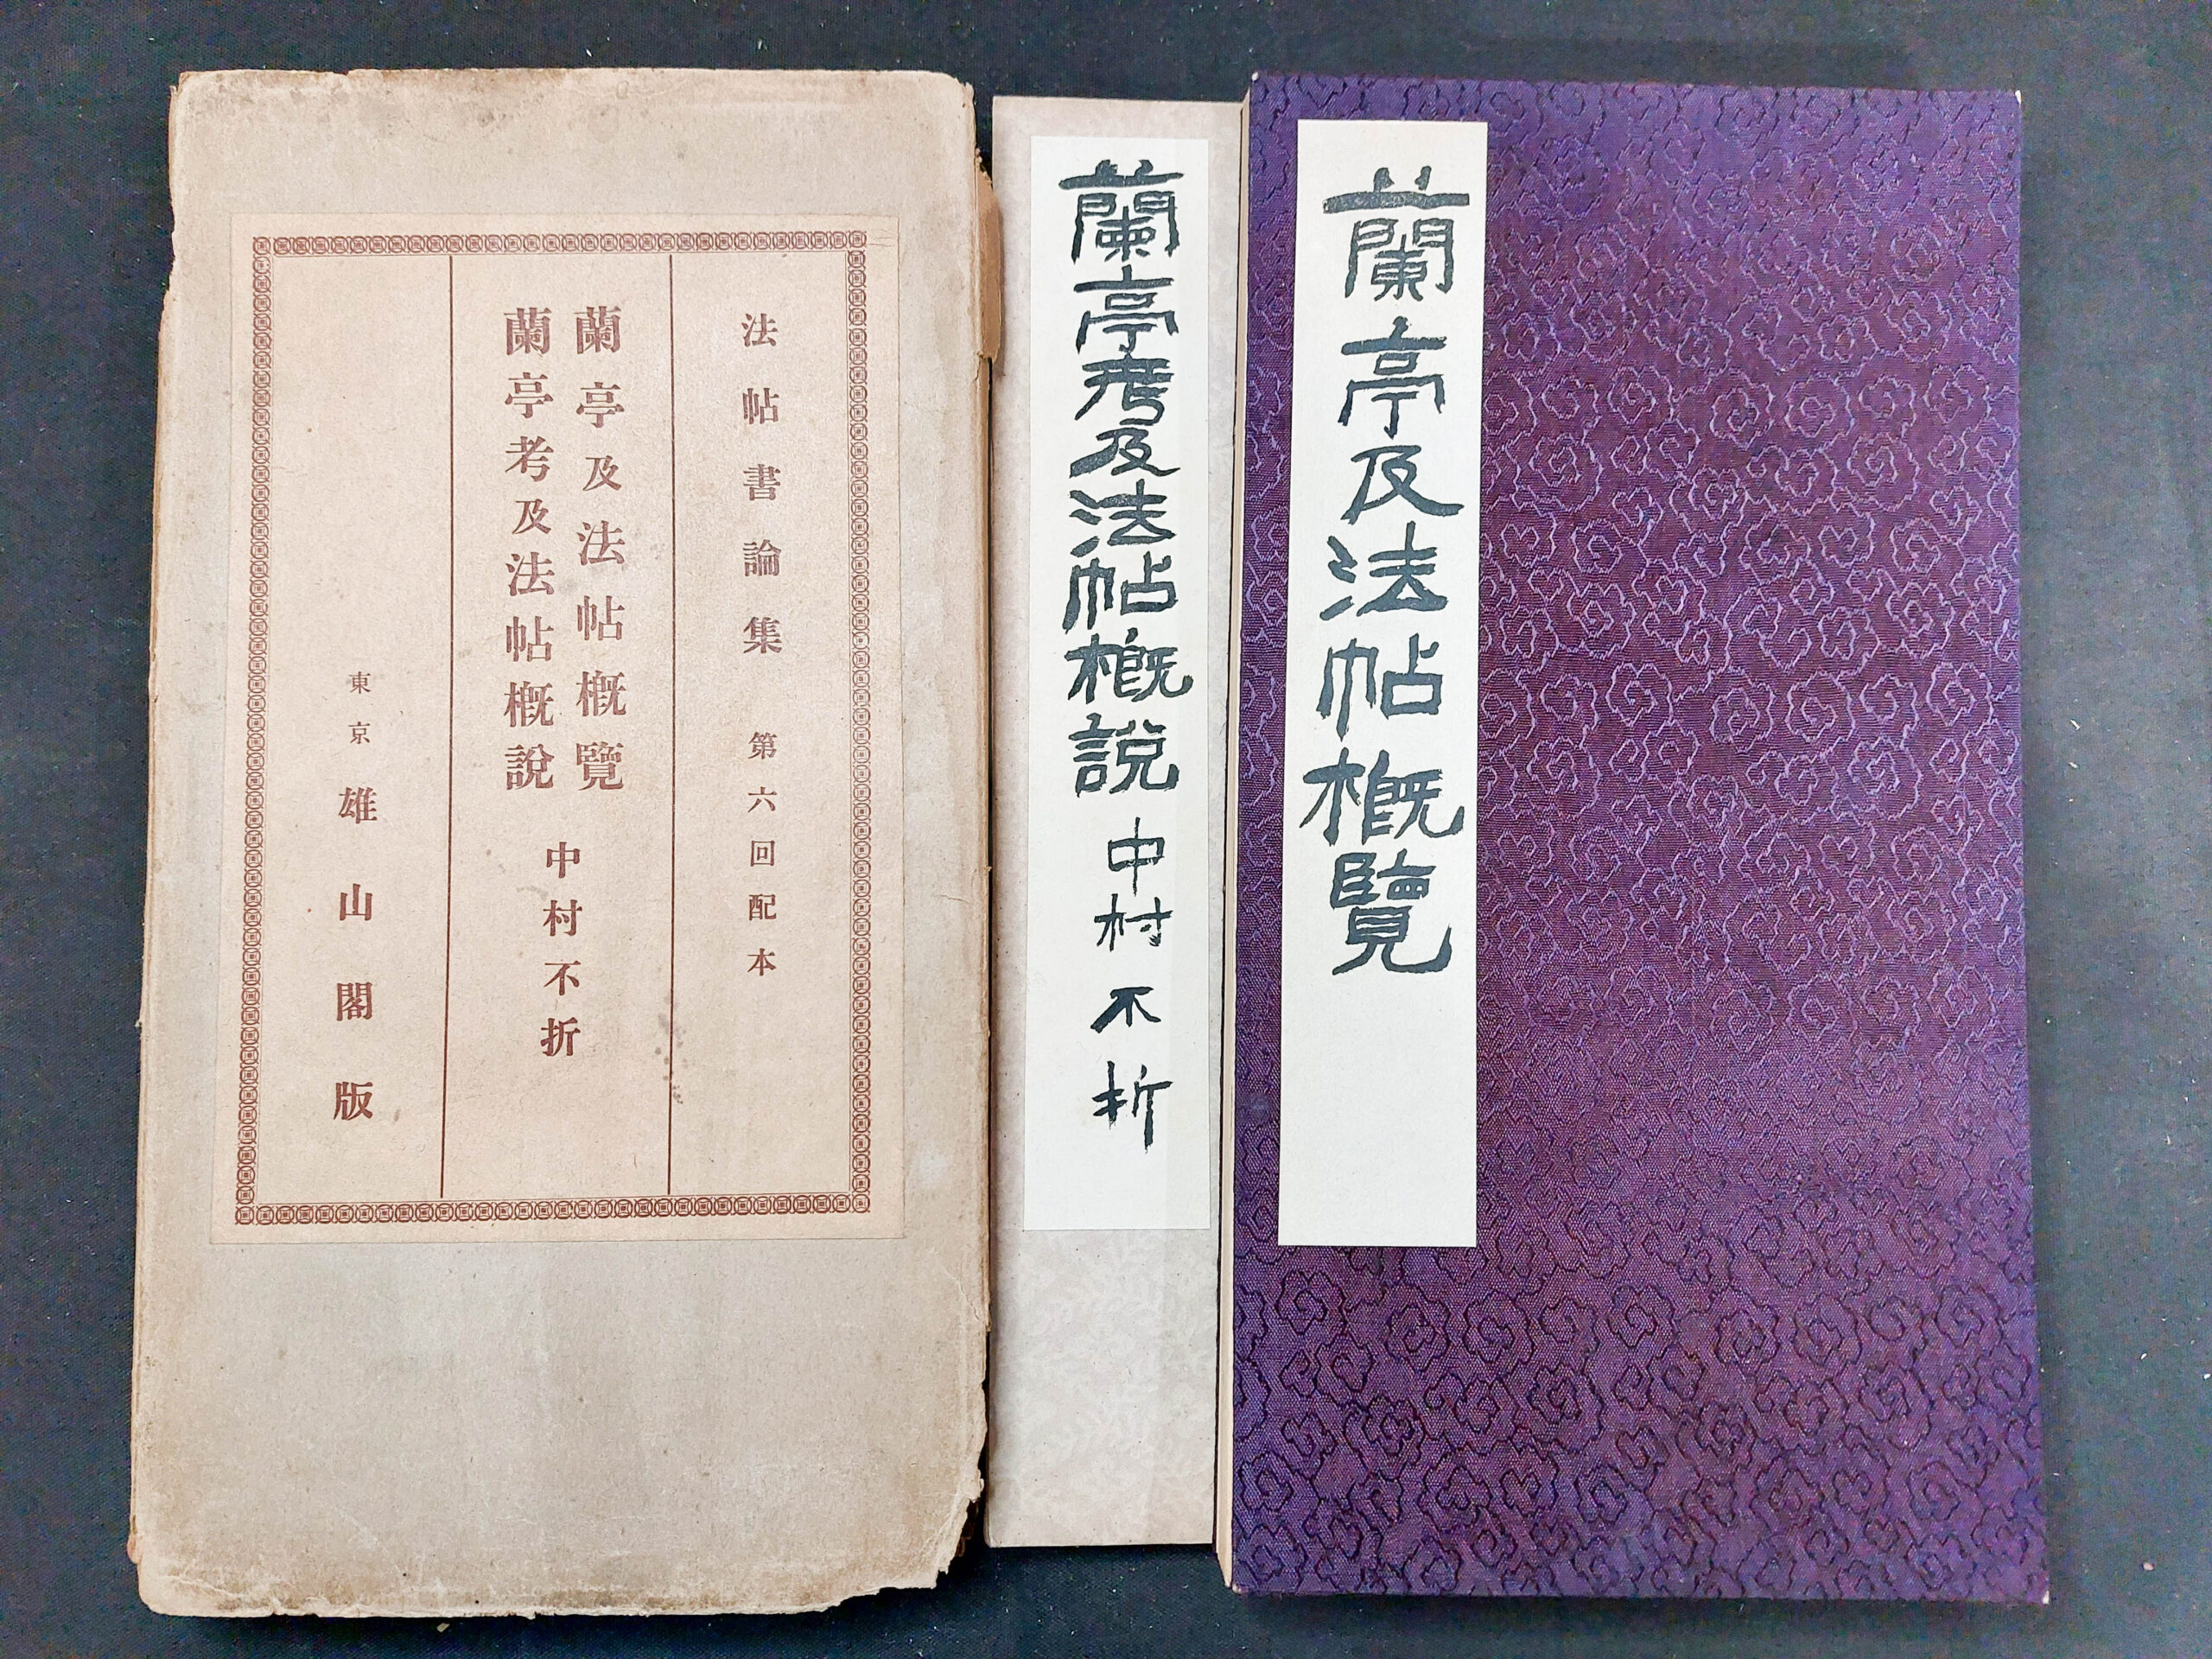 法帖書論集 第六回配本
蘭亭及法帖概覽
蘭亭考及法帖概說
中村不折
東京 雄山閣版
蘭亭考及法帖概說 中村不折
蘭亭及法帖概覽